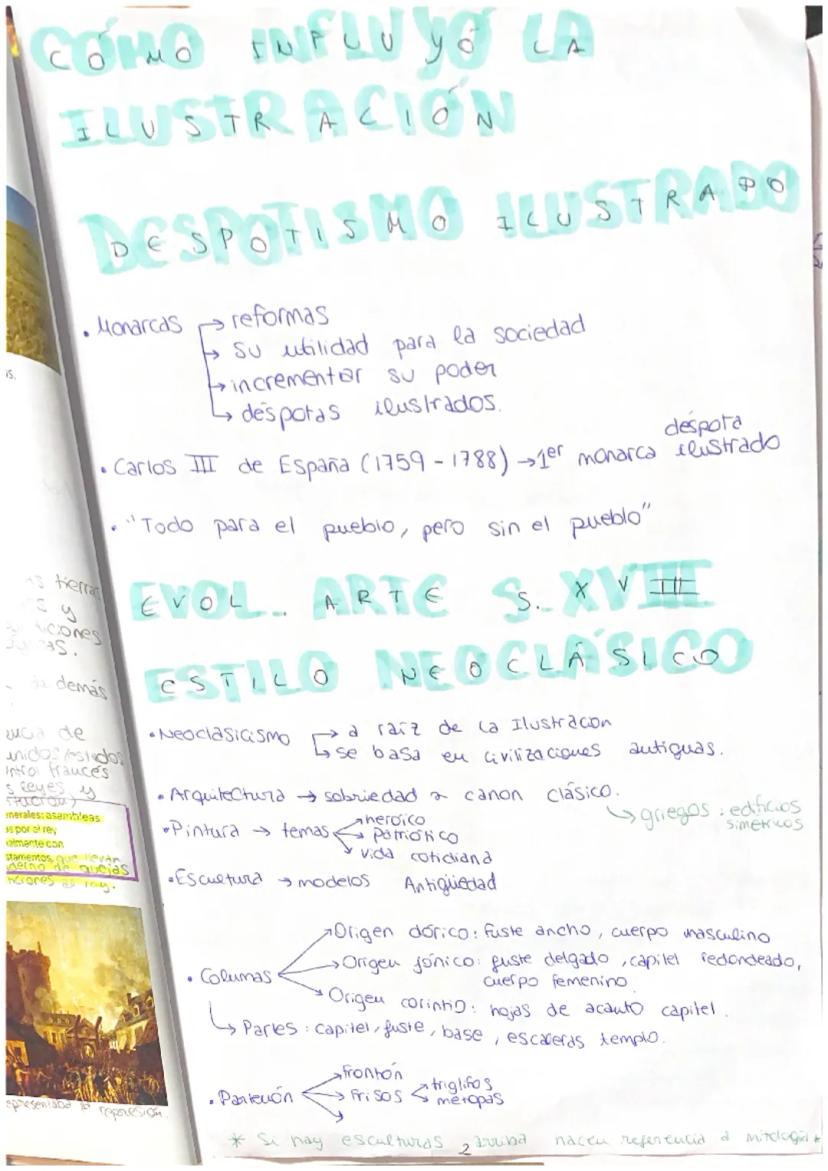 CÓMO INFLUYÓ LA
ILUSTRACIÓN
DESPOTISMO ILUSTRADO
• Monarcas → reformas
→ su utilidad para la sociedad
→ incrementar su poder
→ déspotas ilustrados.
• Carlos III de España (1759 - 1788) → 1er monarca déspota ilustrado
• "Todo para el pueblo, pero sin el pueblo"
EVOL. ARTE S. XVIII
ESTILO NEOCLÁSICO
• Neoclasicismo → a raíz de la Ilustracion
→ se basa en civilizaciones antiguas.
• Arquitectura → sobriedad a canon clásico.
→ griegos : edificios
simétricos
• Pintura → temas → heroico
→ patriótico
→ vida cotidiana
• Escultura → modelos Antigüedad
• Columnas → Origen dórico: fuste ancho, cuerpo masculino
→ Origen jónico: fuste delgado, capitel redondeado,
cuerpo femenino
→ Origen corintio: hojas de acanto capitel.
→ Partes: capitel, fuste, base, escaleras templo.
• Partenón → frontón
→ frisos → triglifos
→ metopas
* Si hay esculturas arriba hacen referencia a mitología *
2
is.
tierras
y
demás
de
francés
reyes, y
asambleas
por el rey
con
que llevan
de quejas
rey.
la represión.